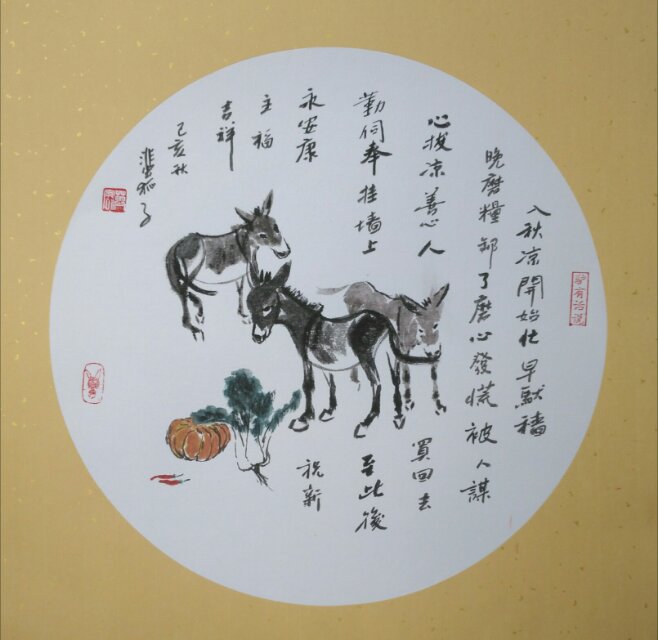 入秋凉開始忙早馱穡
晚磨糧卸了磨心發慌被人謀
心拔凉善心人買回去
勤伺奉挂墙上至此後
永安康祝新
主福
吉祥
己亥秋